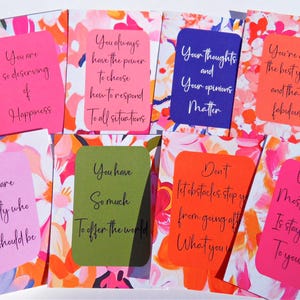 You are
so deserving
of
Happiness
You always
have the power
to choose
how to respond
To all situations
Your thoughts
and
Your opinions
Matter
You're
the best
and tha
fabulou
are
tly who
should be
You have
So much
To offer the world
Don't
let obstacles stop y
from going aft
What you w
Mos
It stay
To you